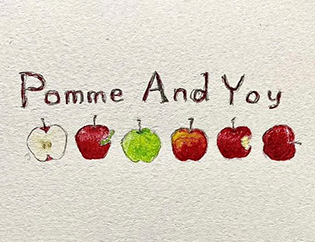 Pomme And Yoy